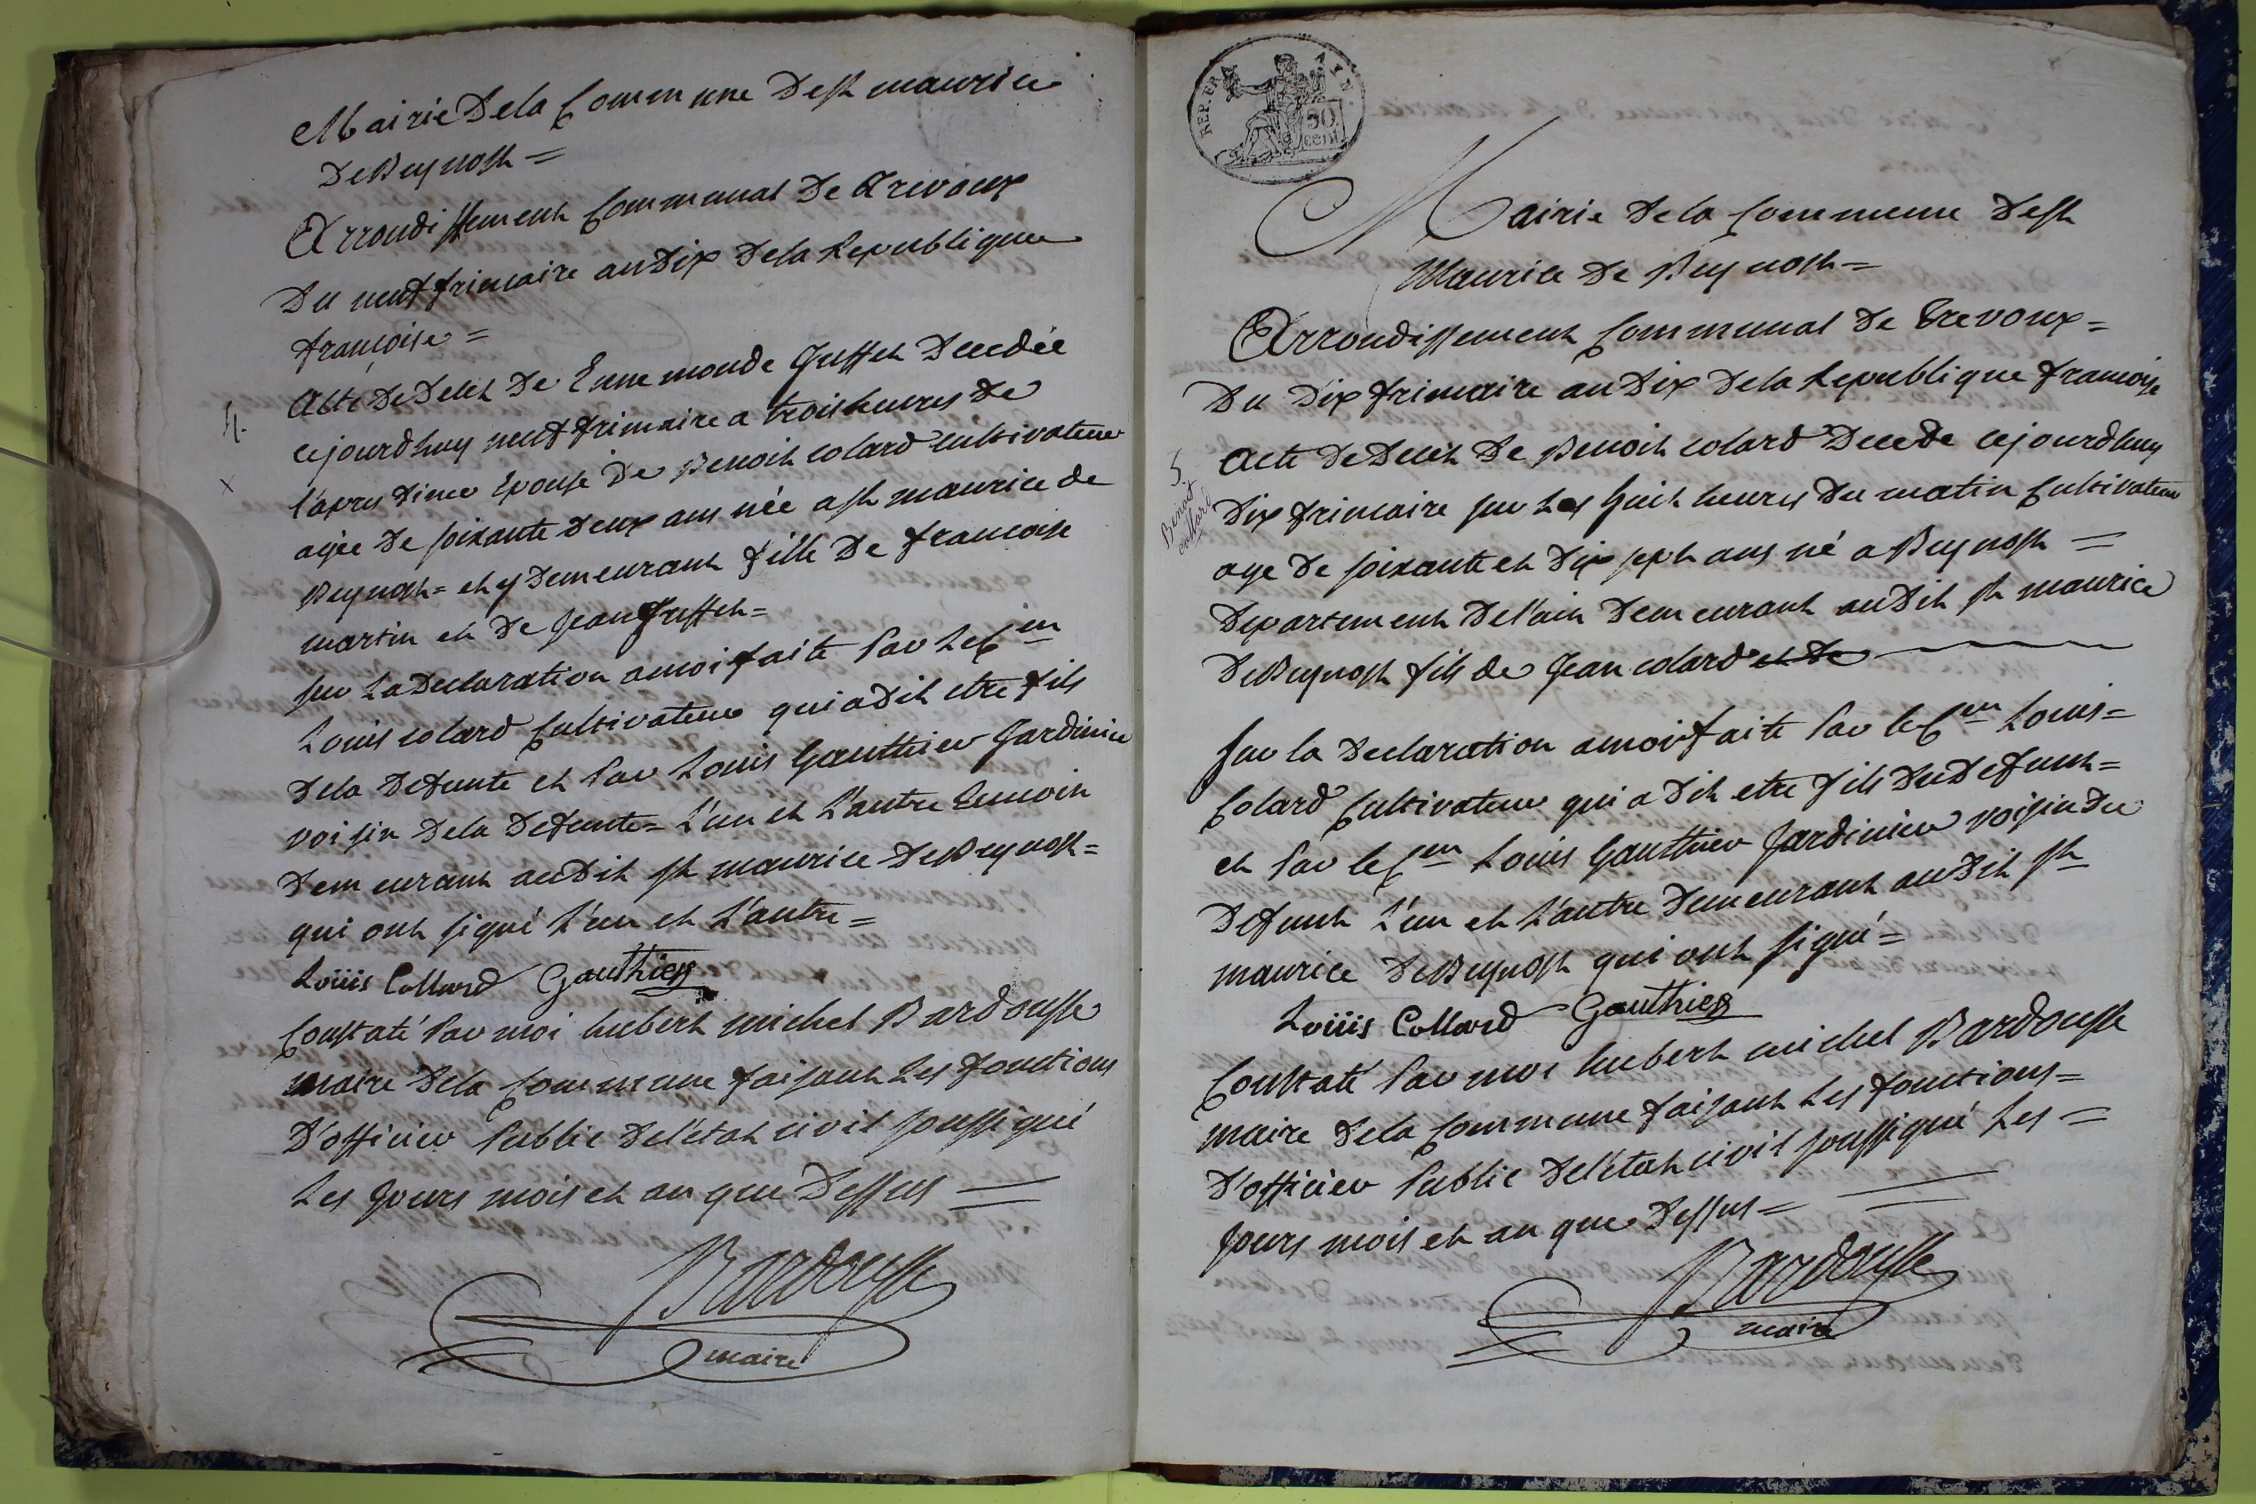 Mairie Dela Commune De st maurice
De Beynost =
Arrondissement Communal De Trevoux
Du neuf frimaire an Dix Dela Republique
françoise =
4.
Acte De Deces De Ennemonde Juffet Decedée
cejourdhuy neuf frimaire a trois heures De
l'apres dinee Epouse De Benoit colard cultivateur
agée De soixante deux ans née a st maurice de
Beynost = et y Demeurant fille De francoise
martin et De Jean Juffet =
sur La Declaration a moi faite Par Le Cen
Louis colard Cultivateur qui a Dit etre fils
Dela Defunte et Par Louis Gauthier Jardinier
voisin Dela Defunte = L'un et L'autre Temoin
Demeurant au Dit st maurice De Beynost =
qui ont signé L'un et L'autre =
Loüis Collard Gauthier
Constaté Par moi hubert michel Bardousse
maire Dela Commune faisant Les fonctions
D'officier Public De l'état civil soussigné
Les Jours mois et an que Dessus =
Bardousse
maire
REP. FRA
50
cent
Mairie Dela Commune De st
Maurice De Beynost =
Arrondissement Communal De Trevoux =
Du Dix frimaire an Dix Dela Republique francoise
5
Benoit
collard
Acte De Deces De Benoit colard Decede cejourdhuy
Dix frimaire sur Les huit heures Du matin Cultivateur
age De soixante et Dix sept ans né a Beynost =
Departement De l'ain Demeurant au Dit st maurice
De Beynost fils de Jean colard et De
sur la Declaration a moi faite Par le Cen Louis =
Colard Cultivateur qui a Dit etre fils Du Defunt =
et Par le Cen Louis Gauthier Jardinier voisin Du
Defunt L'un et L'autre Demeurant au Dit st
maurice De Beynost qui ont signé =
Loüis Collard Gauthier
Constaté Par moi hubert michel Bardousse
maire Dela Commune faisant Les fonctions =
D'officier Public De l'état civil soussigné Les =
Jours mois et an que Dessus =
Bardousse
maire